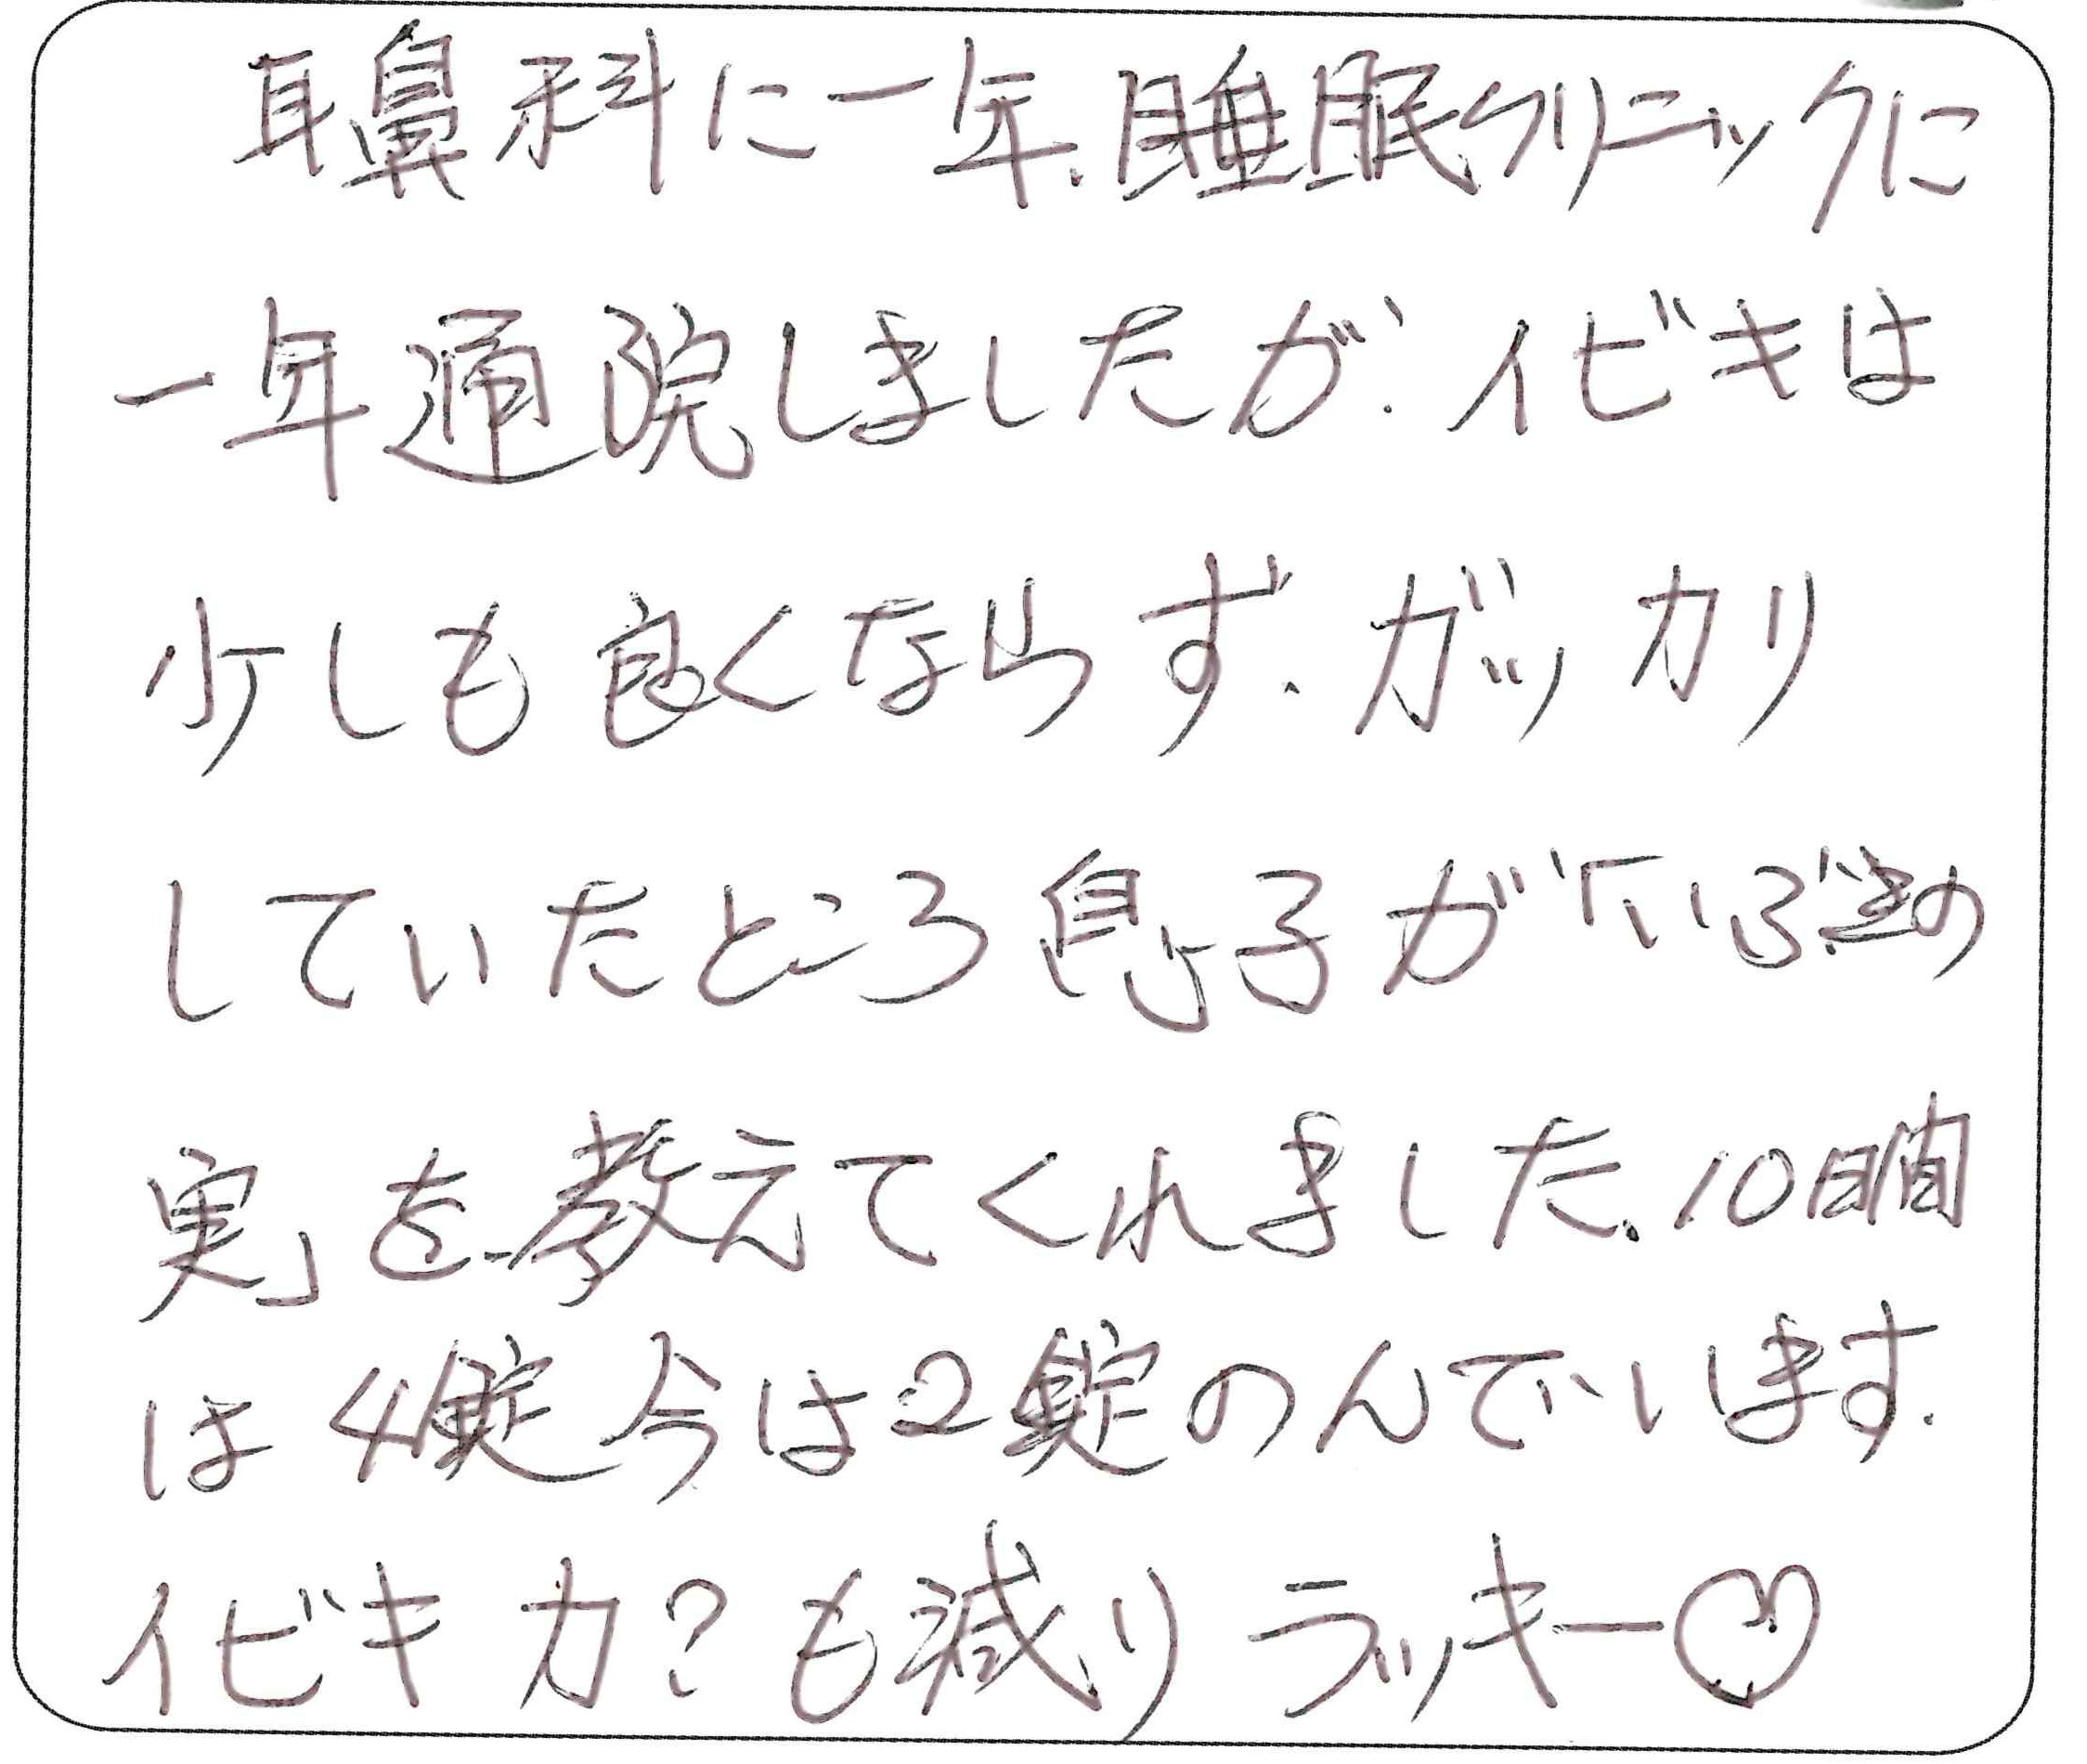 耳鼻科に一年、睡眠クリニックに
一年通院しましたが、イビキは
少しも良くならず、ガッカリ
していたところ息子が「いぶきの
実」を教えてくれました、10日間
は4錠今は2錠のんでいます。
イビキ力?も減りラッキー♡